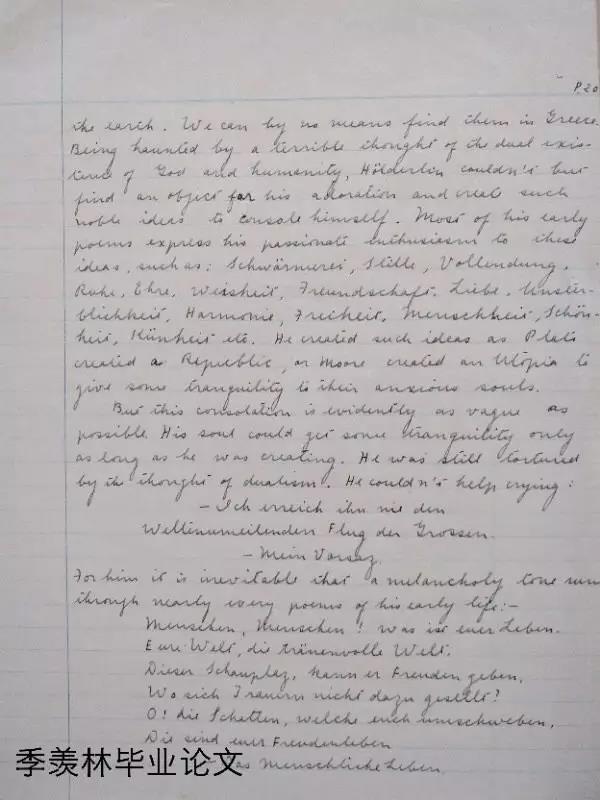 P.20
the earth. We can by no means find them in Greece.
Being haunted by a terrible thought of the dual exis-
tence of God and humanity, Hölderlin couldn't but
find an object for his adoration and create such
noble ideas to console himself. Most of his early
poems express his passionate enthusiasm to these
ideas, such as: Schwärmerei, Stille, Vollendung,
Ruhe, Ehre, Weisheit, Freundschaft, Liebe, Unster-
blichkeit, Harmonie, Freiheit, Menschheit, Schön-
heit, Künheit etc. He created such ideas as Plato
created a Republic, or Moore created an Utopia to
give some tranquility to their anxious souls.
But this consolation is evidently as vague as
possible. His soul could get some tranquility only
as long as he was creating. He was still tortured
by the thought of dualism. He couldn't help crying:
— Ich erreich ihn nie den
Weltenumeilenden Flug der Grossen.
— Mein Vorsaz.
For him it is inevitable that a melancholy tone run
through nearly every poems of his early life:—
Menschen, Menschen! was ist euer Leben.
Eure Welt, die tränenvolle Welt.
Dieser Schauplaz, kann er Freuden geben,
Wo sich Trauern nicht dazu gesellt?
O! die Schatten, welche euch umschweben,
Die sind euer Freudenleben
Das Menschliche Leben.
季羡林毕业论文